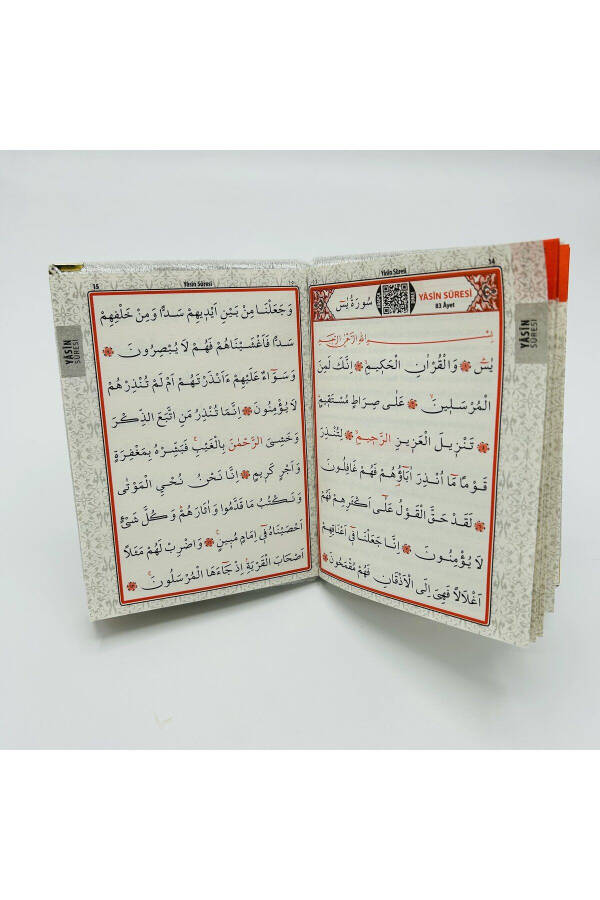 14
Yâsin Sûresi
YÂSİN SÛRESİ
83 Âyet
سُورَةُ يٰسٓ
بِسْمِ اللّٰهِ الرَّحْمٰنِ الرَّحِيمِ
يٰسٓ ۚ وَالْقُرْاٰنِ الْحَكِيمِۙ اِنَّكَ لَمِنَ
الْمُرْسَلِينَۙ عَلٰى صِرَاطٍ مُسْتَقِيمٍۜ
تَنْزِيلَ الْعَزِيزِ الرَّحِيمِۙ لِتُنْذِرَ
قَوْمًا مَٓا اُنْذِرَ اٰبَٓاؤُ۬هُمْ فَهُمْ غَافِلُونَ
لَقَدْ حَقَّ الْقَوْلُ عَلٰٓى اَكْثَرِهِمْ فَهُمْ
لَا يُؤْمِنُونَ اِنَّا جَعَلْنَا ف۪ٓي اَعْنَاقِهِمْ
اَغْلَالًا فَهِيَ اِلَى الْاَذْقَانِ فَهُمْ مُقْمَحُونَ
YÂSİN
SÛRESİ
15
Yâsin Sûresi
وَجَعَلْنَا مِنْ بَيْنِ اَيْدِيهِمْ سَدًّا وَمِنْ خَلْفِهِمْ
سَدًّا فَاَغْشَيْنَاهُمْ فَهُمْ لَا يُبْصِرُونَ
وَسَوَٓاءٌ عَلَيْهِمْ ءَاَنْذَرْتَهُمْ اَمْ لَمْ تُنْذِرْهُمْ
لَا يُؤْمِنُونَ اِنَّمَا تُنْذِرُ مَنِ اتَّبَعَ الذِّكْرَ
وَخَشِيَ الرَّحْمٰنَ بِالْغَيْبِۚ فَبَشِّرْهُ بِمَغْفِرَةٍ
وَاَجْرٍ كَرِيمٍ اِنَّا نَحْنُ نُحْيِي الْمَوْتٰى
وَنَكْتُبُ مَا قَدَّمُوا وَاٰثَارَهُمْ وَكُلَّ شَيْءٍ
اَحْصَيْنَاهُ ف۪ٓي اِمَامٍ مُبِينٍ۟ وَاضْرِبْ لَهُمْ مَثَلًا
اَصْحَابَ الْقَرْيَةِ اِذْ جَٓاءَهَا الْمُرْسَلُونَۚ
YÂSİN
SÛRESİ